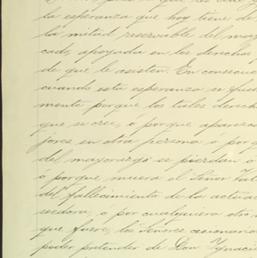 la esperanza que hoy tiene de
la mitad reservable del ma
cado, apoyada en los derechos
de que le asisten. En consecuen
cuando esta esperanza se
mente porque los tales derech
que se cree, o porque aparezca
jores en otra persona o porq
del mayorazgo se pierdan o
o porque muera el Señor
del fallecimiento de la actua
seedora, o por cualquiera otro
que fuere, los Señores cesionario
poder pretender de Don Ygnacio